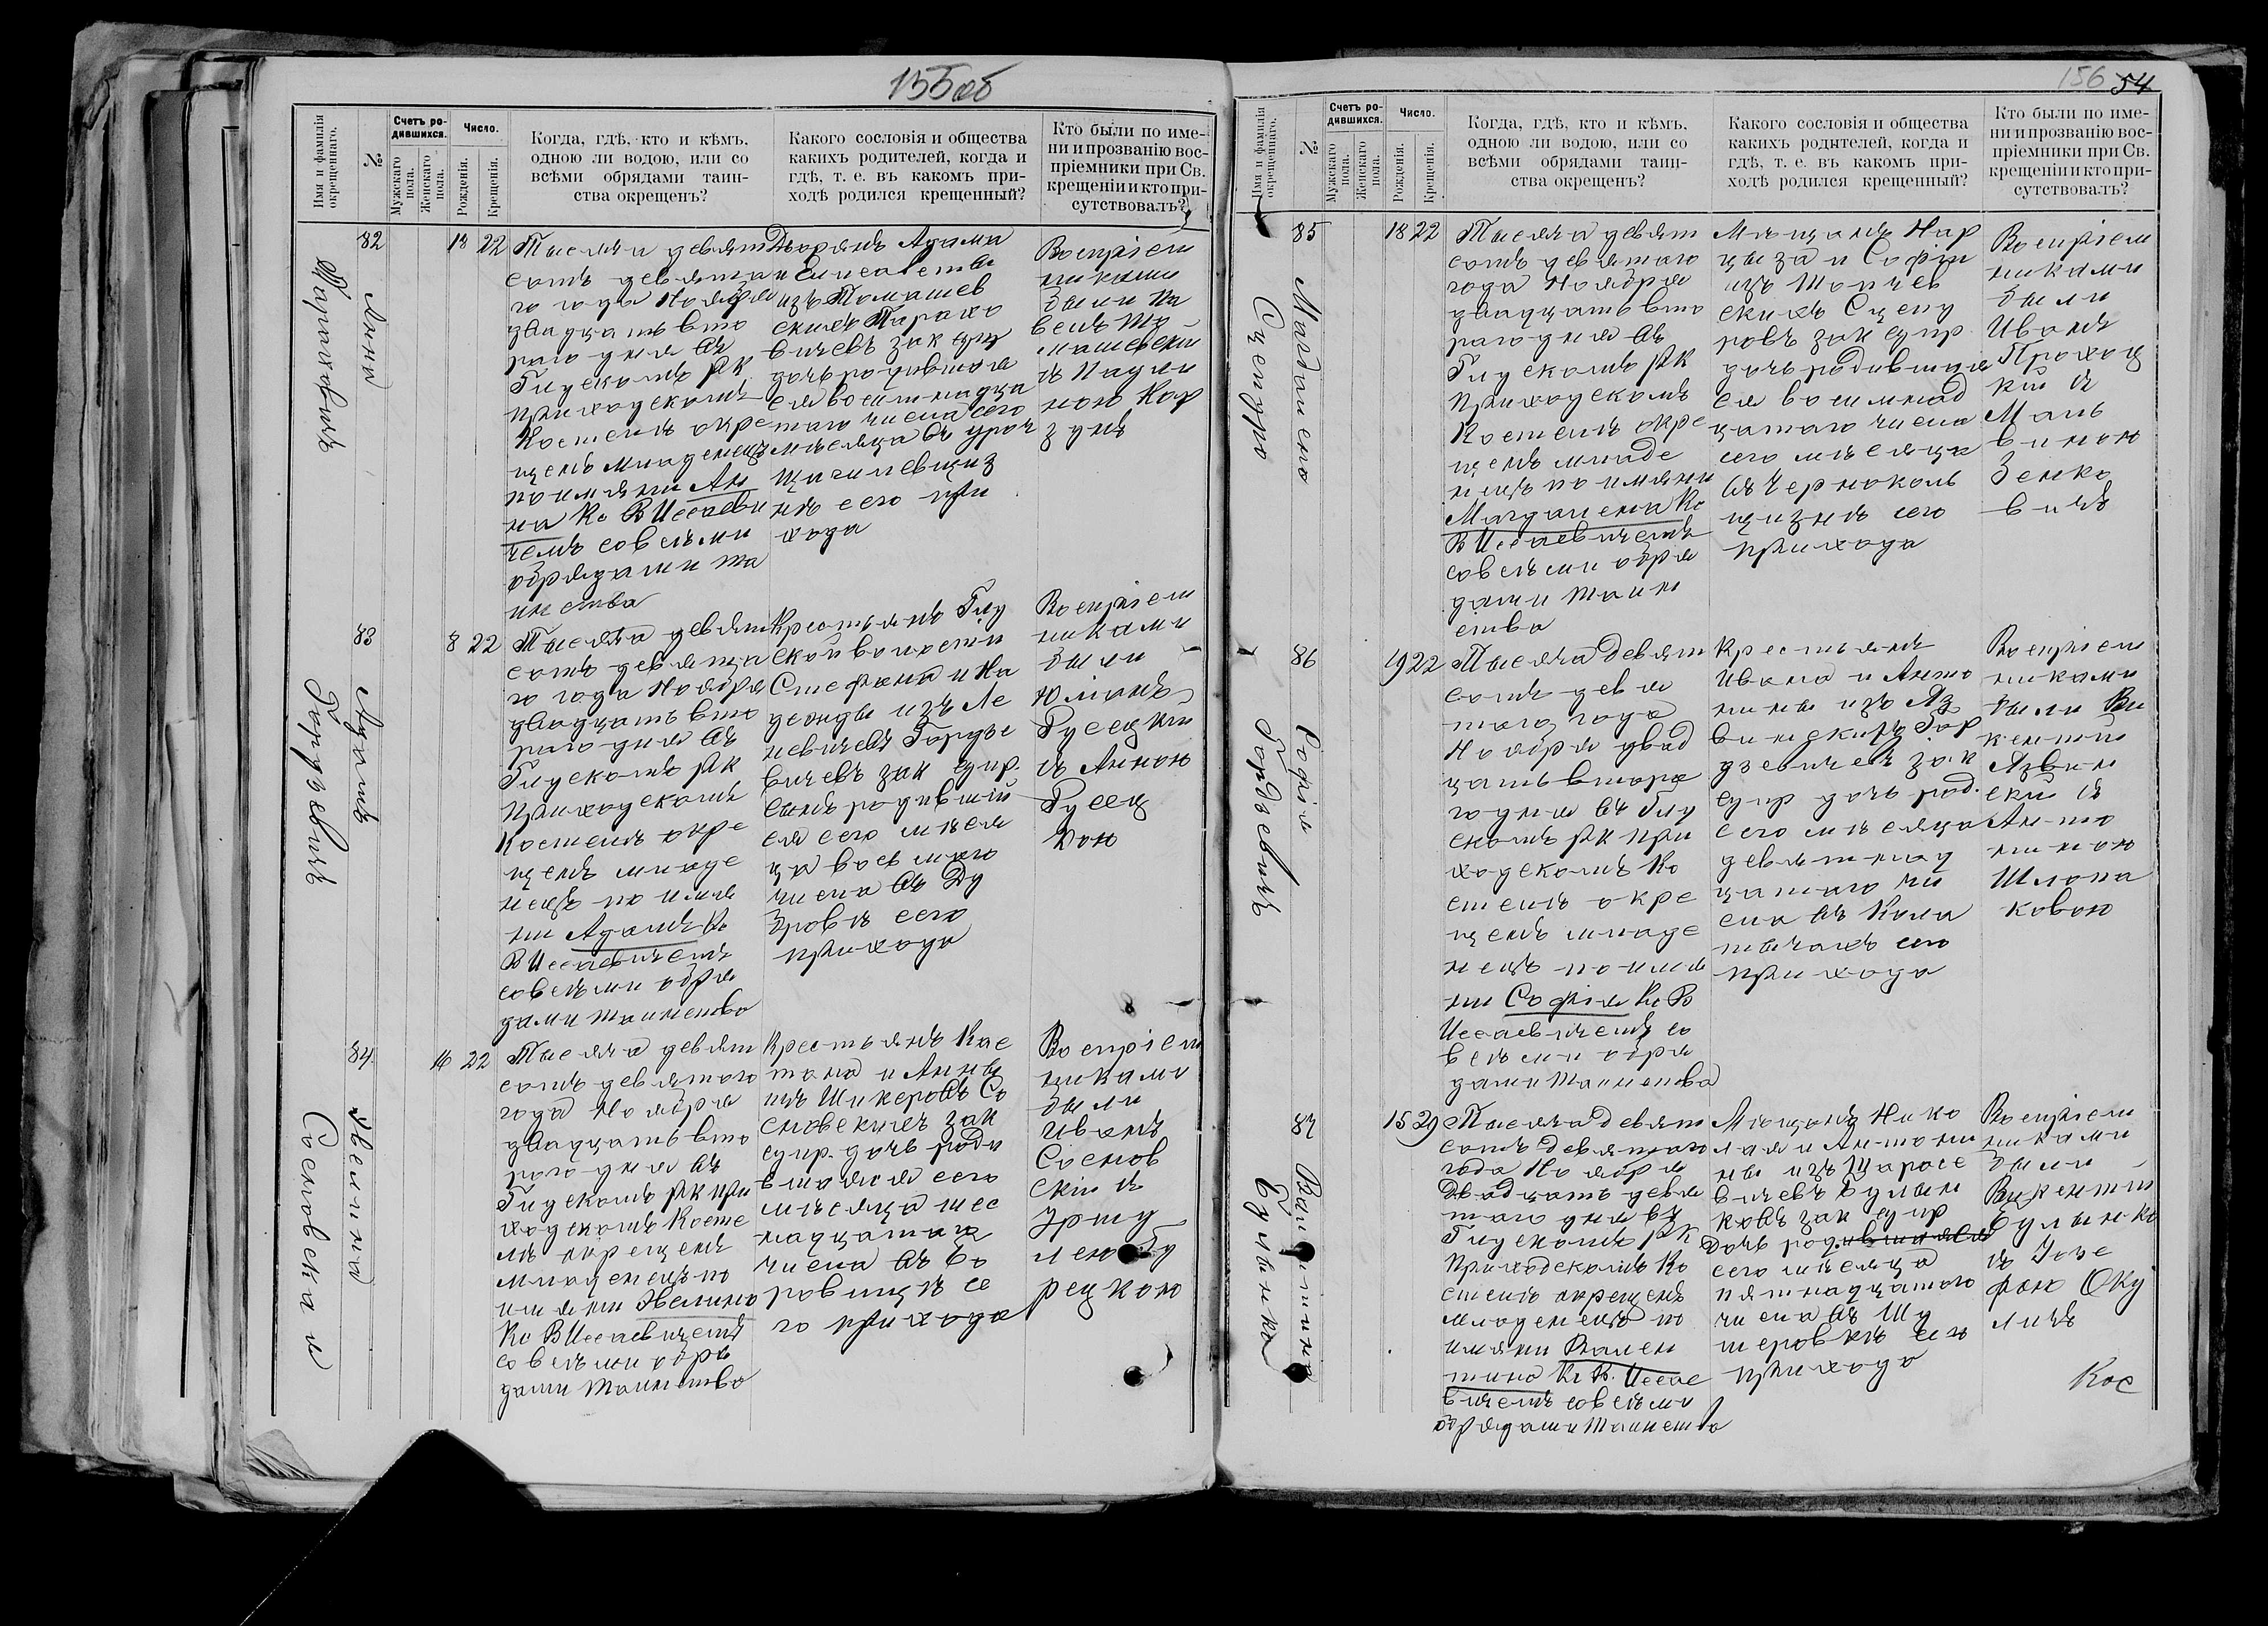 155об
Имя и фамилія
окрещеннаго.
№
Счетъ ро-
дившихся.
Мужскаго
пола.
Женскаго
пола.
Число.
Рожденія.
Крещенія.
Когда, гдѣ, кто и кѣмъ,
одною ли водою, или со
всѣми обрядами таин-
ства окрещенъ?
Какого сословія и общества
какихъ родителей, когда и
гдѣ, т. е. въ какомъ при-
ходѣ родился крещенный?
Кто были по име-
ни и прозванію вос-
пріемники при Св.
крещеніи и кто при-
сутствовалъ?
Анна
82
18 22
Тысяча девят
сотъ девята
го года Ноября
двадцать вто
раго дня въ
Глускомъ РК
приходскомъ
Костелѣ окре
щенъ младенецъ
по имяни Ан
на Кс В Иссаеви
чемъ со всѣми
обрядами та
инства
Дворянъ Адама
и Елисаветы
изъ Томашев
скихъ
зак супр
дочь родившая
ся восемнадца
таго числа сего
мѣсяца въ уроч
нѣ сего при
хода
Воспріем
никами
были
съ Паули
ною Кор
зунъ
Адамъ
Гордзевичъ
83
8 22
Тысяча девят
сотъ девята
го года Ноября
двадцать вто
раго дня въ
Глускомъ РК
приходскомъ
Костелѣ окре
щенъ младе
нецъ по имя
ни Адамъ Кс
В Иссаевичемъ
со всѣми обря
дами таинства
Крестьянъ Глу
ской волости
Стефана и На
дежды изъ Ле
невичевъ Гордзе
вичевъ зак супр.
сынъ родившій
ся сего мѣся
ца восьмаго
числа въ Ду
бровѣ сего
прихода
Воспріем
никами
были
Юліанъ
Гусецкій
съ Анною
Гусец
кою
Эвелина
Сосновская
84
16 22
Тысяча девят
сотъ девятаго
года Ноября
двадцать вто
раго дня въ
Глускомъ РК при
ходскомъ Косте
лѣ окрещенъ
младенецъ по
имяни Эвелина
Кс В Иссаевичемъ
со всѣми обря
дами таинства
Крестьянъ Кае
тана и Анны
изъ Шикеровъ Со
сновскихъ зак
супр. дочь роди
вшаяся сего
мѣсяца шес
надцатаго
числа въ Бо
ровицѣ се
го прихода
Воспріем
никами
были
Иванъ
Соснов
скій съ
рецкою
156 54
Имя и фамилія
окрещеннаго.
№
Счетъ ро-
дившихся.
Мужскаго
пола.
Женскаго
пола.
Число.
Рожденія.
Крещенія.
Когда, гдѣ, кто и кѣмъ,
одною ли водою, или со
всѣми обрядами таин-
ства окрещенъ?
Какого сословія и общества
какихъ родителей, когда и
гдѣ, т. е. въ какомъ при-
ходѣ родился крещенный?
Кто были по име-
ни и прозванію вос-
пріемники при Св.
крещеніи и кто при-
сутствовалъ?
Магдалена
Сцепуро
85
18 22
Тысяча девят
сотъ девятаго
года Ноября
двадцать вто
раго дня въ
Глускомъ РК
приходскомъ
Костелѣ окре
щенъ младе
нецъ по имяни
Магдалена Кс
В Иссаевичемъ
со всѣми обря
дами таин
ства
Мѣщанъ Нар
цыза и Софіи
изъ
скихъ Сцепу
ровъ зак супр
дочь родившая
ся восемнад
цатаго числа
сего мѣсяца
въ Чернаколь
щизнѣ сего
прихода
Воспріем
никами
были
Иванъ
кій съ
Маль
виною
Зенко
вичъ
Софія
Гордзевичъ
86
19 22
Тысяча девят
сотъ девя
таго года
Ноября двад
цать втора
го дня въ Глу
скомъ РК при
ходскомъ Ко
стелѣ окре
щенъ младе
нецъ по имя
ни Софія Кс В
Иссаевичемъ со
всѣми обря
дами таинства
Крестьянъ
Ивана и Анто
нины изъ Яз
винскихъ Гор
дзевичевъ зак
супр дочь род.
сего мѣсяца
девятнад
цатаго чи
сла въ Кола
тычахъ сего
прихода
Воспріем
никами
были Ви
кентій
Язвин
скій съ
Анто
ниною
Шлапа
ковою
Валентина
Булынка
87
15 29
Тысяча девят
сотъ девятаго
года Ноября
двадцать девя
таго дня въ
Глускомъ РК
приходскомъ Ко
стелѣ окрещенъ
младенецъ по
имяни Вален
тина Кс В. Иссае
вичемъ со всѣми
обрядами таинства
Мѣщанъ Нико
лая и Антони
ны изъ
вичевъ Булын
ковъ зак супр
дочь родившаяся
сего мѣсяца
пятнадцатаго
числа въ Шу
меровкѣ сего
прихода
Воспріем
никами
были
Викентій
Булынко
съ Юзе
фою Оку
личъ
Кос